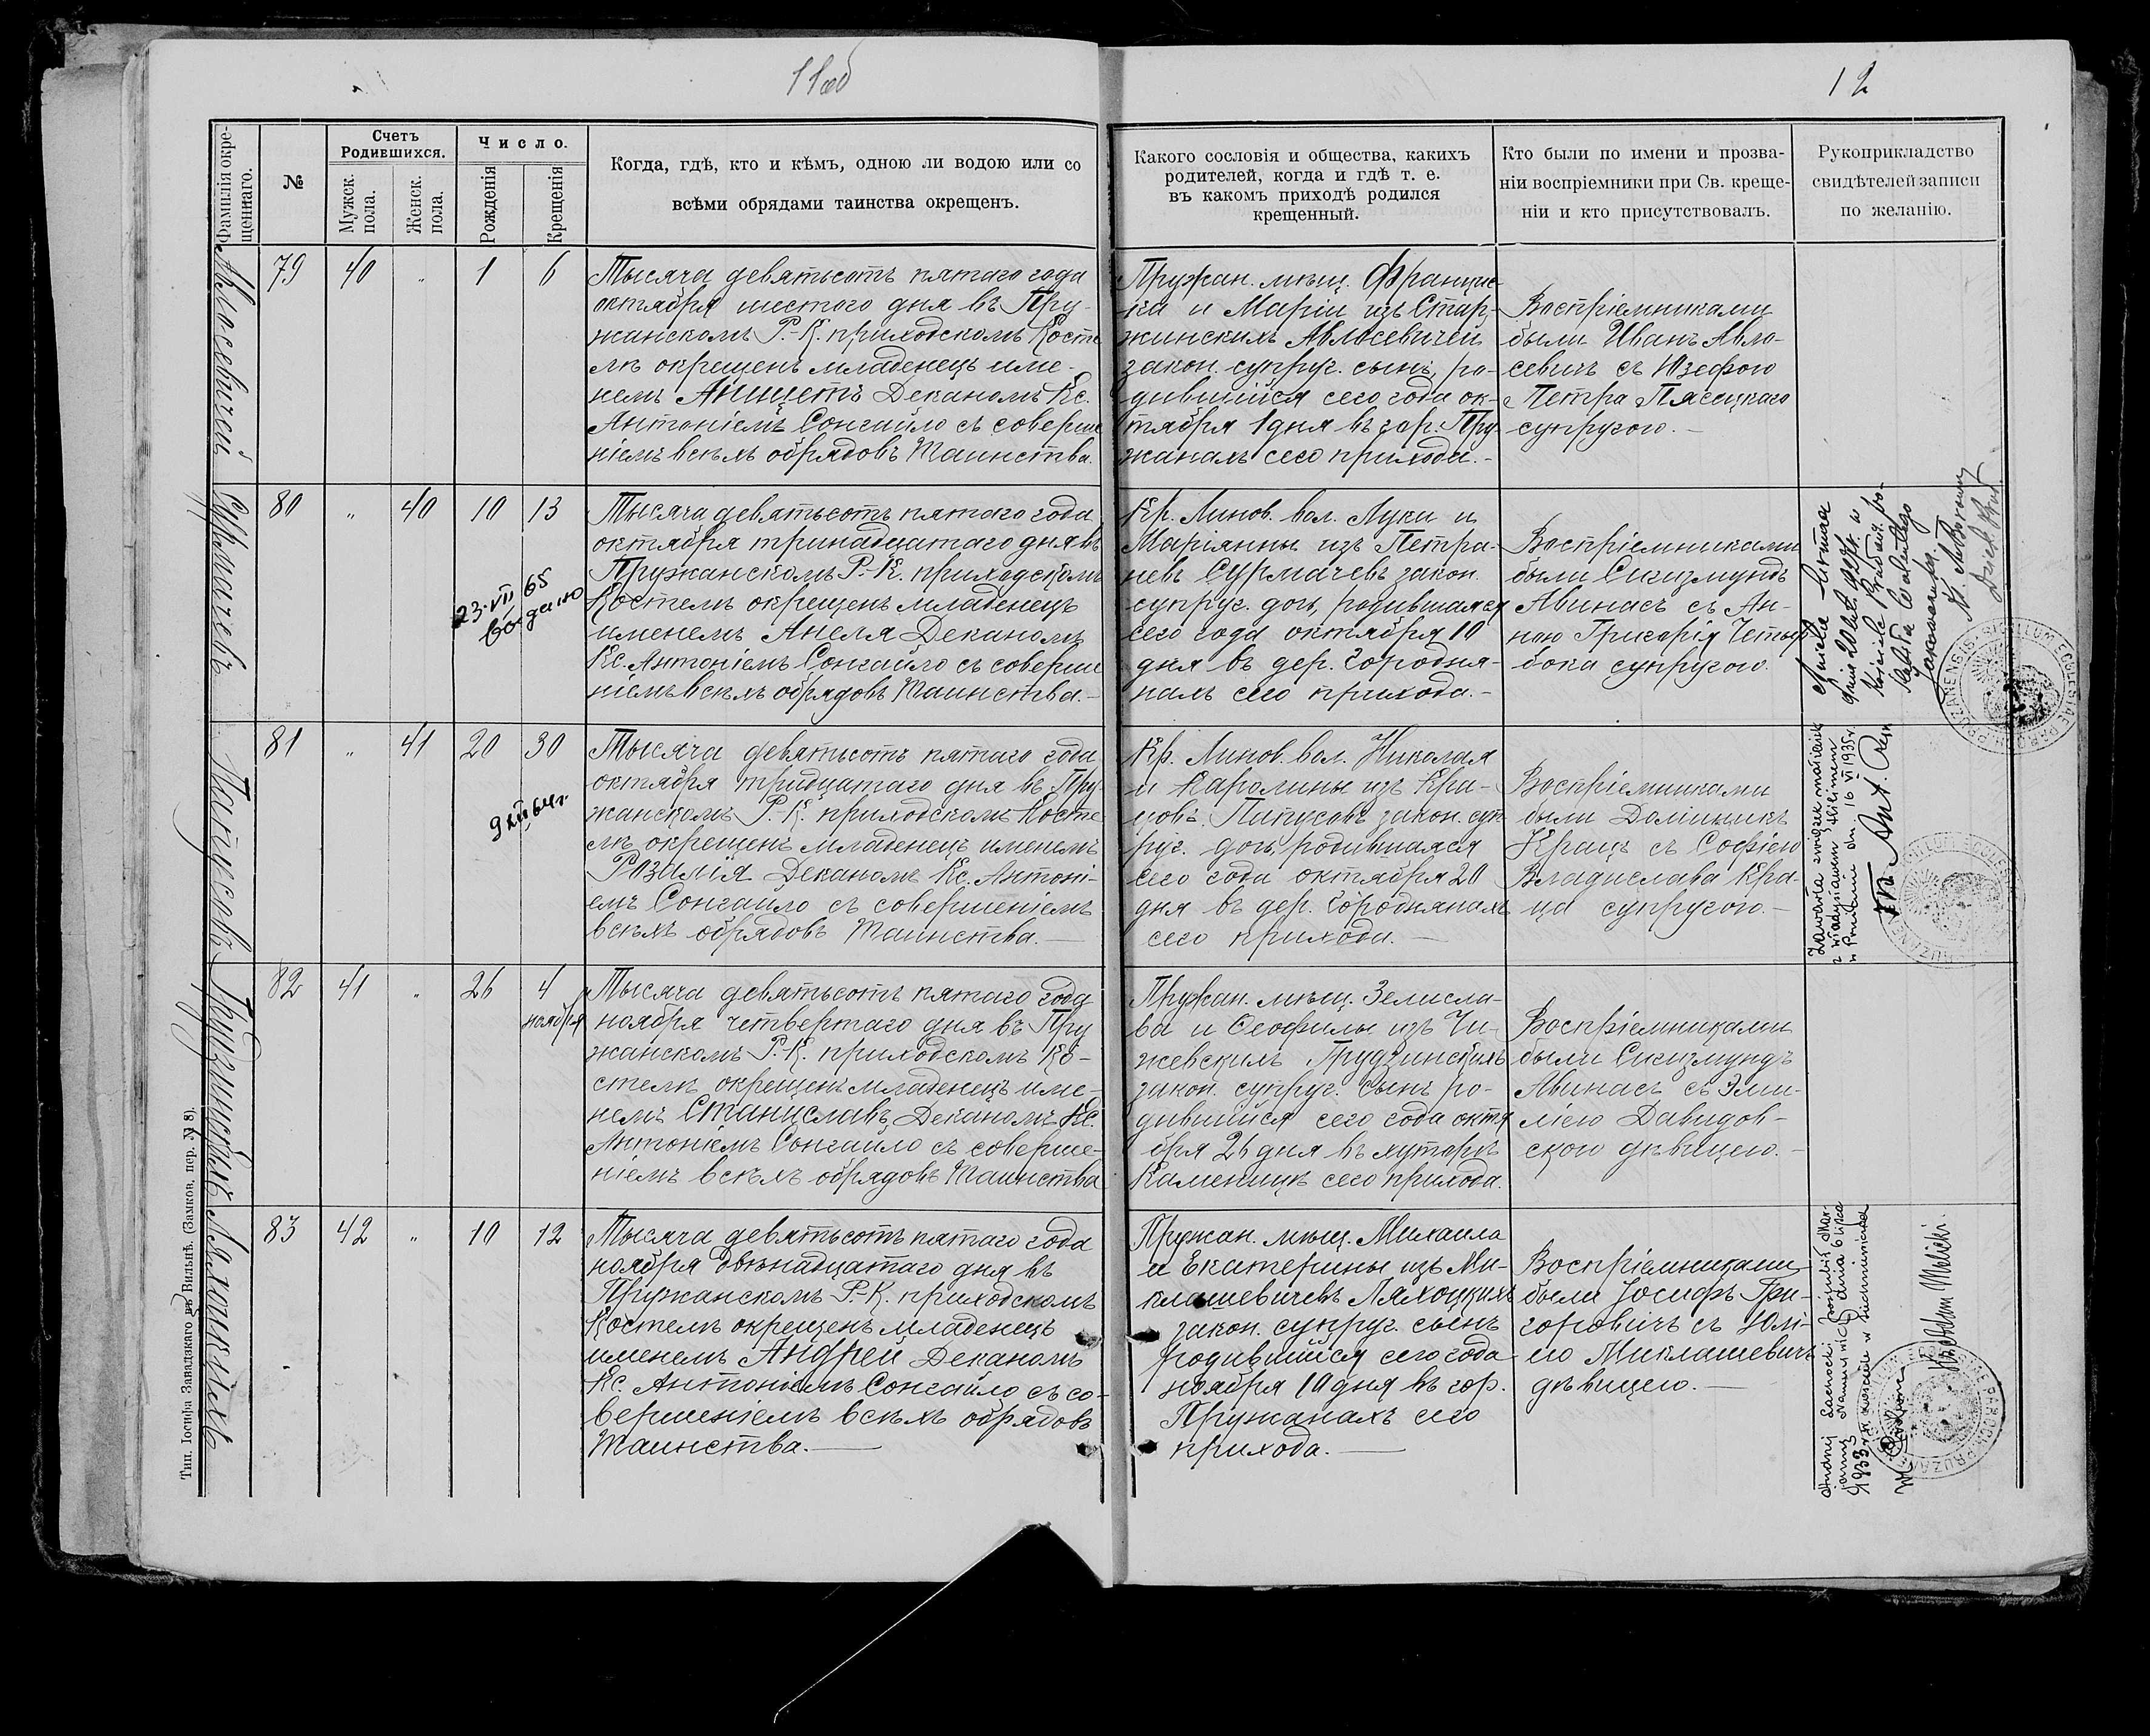 11 об
12
Фамилія окре-
щеннаго.
№
Счетъ
Родившихся.
Мужск.
пола.
Женск.
пола.
Число.
Рожденія
Крещенія
Когда, гдѣ, кто и кѣмъ, одною ли водою или со
всѣми обрядами таинства окрещенъ.
Какого сословія и общества, какихъ
родителей, когда и гдѣ т. е.
въ какомъ приходѣ родился
крещенный.
Кто были по имени и прозва-
ніи воспріемники при Св. креще-
ніи и кто присутствовалъ.
Рукоприкладство
свидѣтелей записи
по желанію.
79
40
"
1
6
Тысяча девятьсотъ пятаго года
октября шестого дня въ Пру-
жанскомъ Р.-К. приходскомъ Косте
лѣ окрещенъ младенецъ име-
немъ Аницетъ Деканомъ Кс.
Антоніемъ Сонгайло съ соверше
ніемъ всѣхъ обрядовъ Таинства.
Пружан. мѣщ. Францис-
ка и Маріи изъ Стар-
жинскихъ Авлосевичей
закон. супруг. сынъ, ро-
дившійся сего года ок-
тября 1 дня въ гор. Пру
жанахъ сего прихода.-
Воспріемниками
были Иванъ Авло-
севичъ съ Юзефою
Петра Пясецкаго
супругою.-
Сурмачевъ
80
"
40
10
13
23·VII 65
выдано
Тысяча девятьсотъ пятаго года
октября тринадцатаго дня въ
Пружанскомъ Р.-К. приходскомъ
Костелѣ окрещенъ младенецъ
именемъ Анеля Деканомъ
Кс. Антоніемъ Сонгайло съ соверше
ніемъ всѣхъ обрядовъ Таинства.-
Кр. Линов. вол. Луки и
Маріянны изъ Петра-
невъ Сурмачевъ закон.
супруг. дочь, родившаяся
сего года октября 10
дня въ дер. Городня-
нахъ сего прихода.-
Воспріемниками
были Сигизмундъ
Авинасъ съ Ан-
ною Григорія Четыр
бока супругою.
Папусовъ
81
"
41
20
30
9 XII 64г.
Тысяча девятьсотъ пятаго года
октября тридцатаго дня въ Пру
жанскомъ Р.-К. приходскомъ Косте
лѣ окрещенъ младенецъ именемъ
Розалія Деканомъ Кс. Антоні-
емъ Сонгайло съ совершеніемъ
всѣхъ обрядовъ Таинства.-
Кр. Линов. вол. Николая
и Каролины изъ Кра-
цовъ Папусовъ закон. суп
руг. дочь, родившаяся
сего года октября 20
дня въ дер. Городнянахъ
сего прихода.-
Воспріемниками
были Доминикъ
Крацъ съ Софіею
Владислава Кра-
ца супругою.-
Zawarła związek małżeński
z Władysławem
w Prużanie dn. 16 VI 1935 r.
Грудзинскихъ
82
41
"
26
4
ноября
Тысяча девятьсотъ пятаго года
ноября четвертаго дня въ Пру
жанскомъ Р.-К. приходскомъ Ко-
стелѣ окрещенъ младенецъ име-
немъ Станиславъ Деканомъ Кс.
Антоніемъ Сонгайло съ соверше-
ніемъ всѣхъ обрядовъ Таинства
Пружан. мѣщ. Зелисла-
ва и Ѳеофилы изъ Чи-
жевскихъ Грудзинскихъ
закон. супруг. сынъ ро-
дившійся сего года октя
бря 26 дня въ хуторѣ
Каменицѣ сего прихода.
Воспріемниками
были Сигизмундъ
Авинасъ съ Эми-
ліею Давидов-
скою дѣвицею.-
Ляхоцкихъ
83
42
"
10
12
Тысяча девятьсотъ пятаго года
ноября двѣнадцатаго дня въ
Пружанскомъ Р.-К. приходскомъ
Костелѣ окрещенъ младенецъ
именемъ Андрей Деканомъ
Кс. Антоніемъ Сонгайло съ со-
вершеніемъ всѣхъ обрядовъ
Таинства.-
Пружан. мѣщ. Михаила
и Екатерины изъ Ми-
клашевичевъ Ляхоцкихъ
закон. супруг. сынъ
родившійся сего года
ноября 10 дня въ гор.
Пружанахъ сего
прихода.-
Воспріемниками
были Іосифъ Гри-
горовичъ съ Юлі-
ею Миклашевичъ
дѣвицею.-
Andrzej Lachocki poślubił Mar-
dnia 6 lipca
1933 r. w kościele w
Тип. Іосифа Завадзкаго въ Вильнѣ. (Замков. пер. № 8).